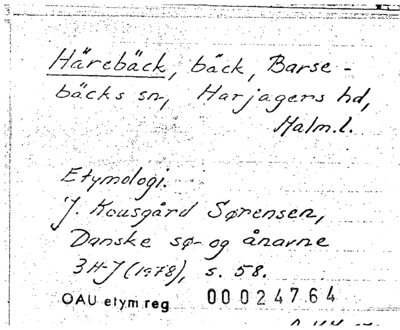 Härebäck, bäck, Barse-
bäcks sn, Harjagers hd,
Malm.l.
Etymologi.
J. Kousgård Sørensen,
Danske sø- og ånavne
3 H-J (1978), s. 58.
OAU etym reg 00024764